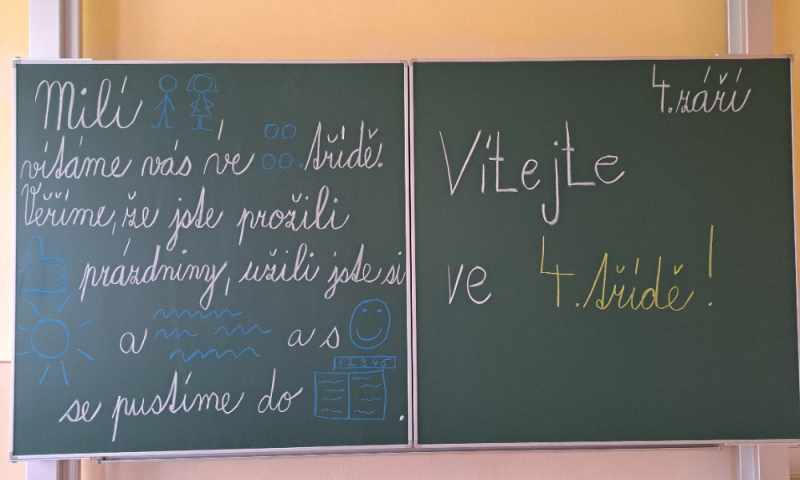 Milí
vítáme vás ve . třídě!
Věříme, že jste prožili
prázdniny, užili jste si
a a s
se pustíme do .
4. září
Vítejte
ve 4. třídě!